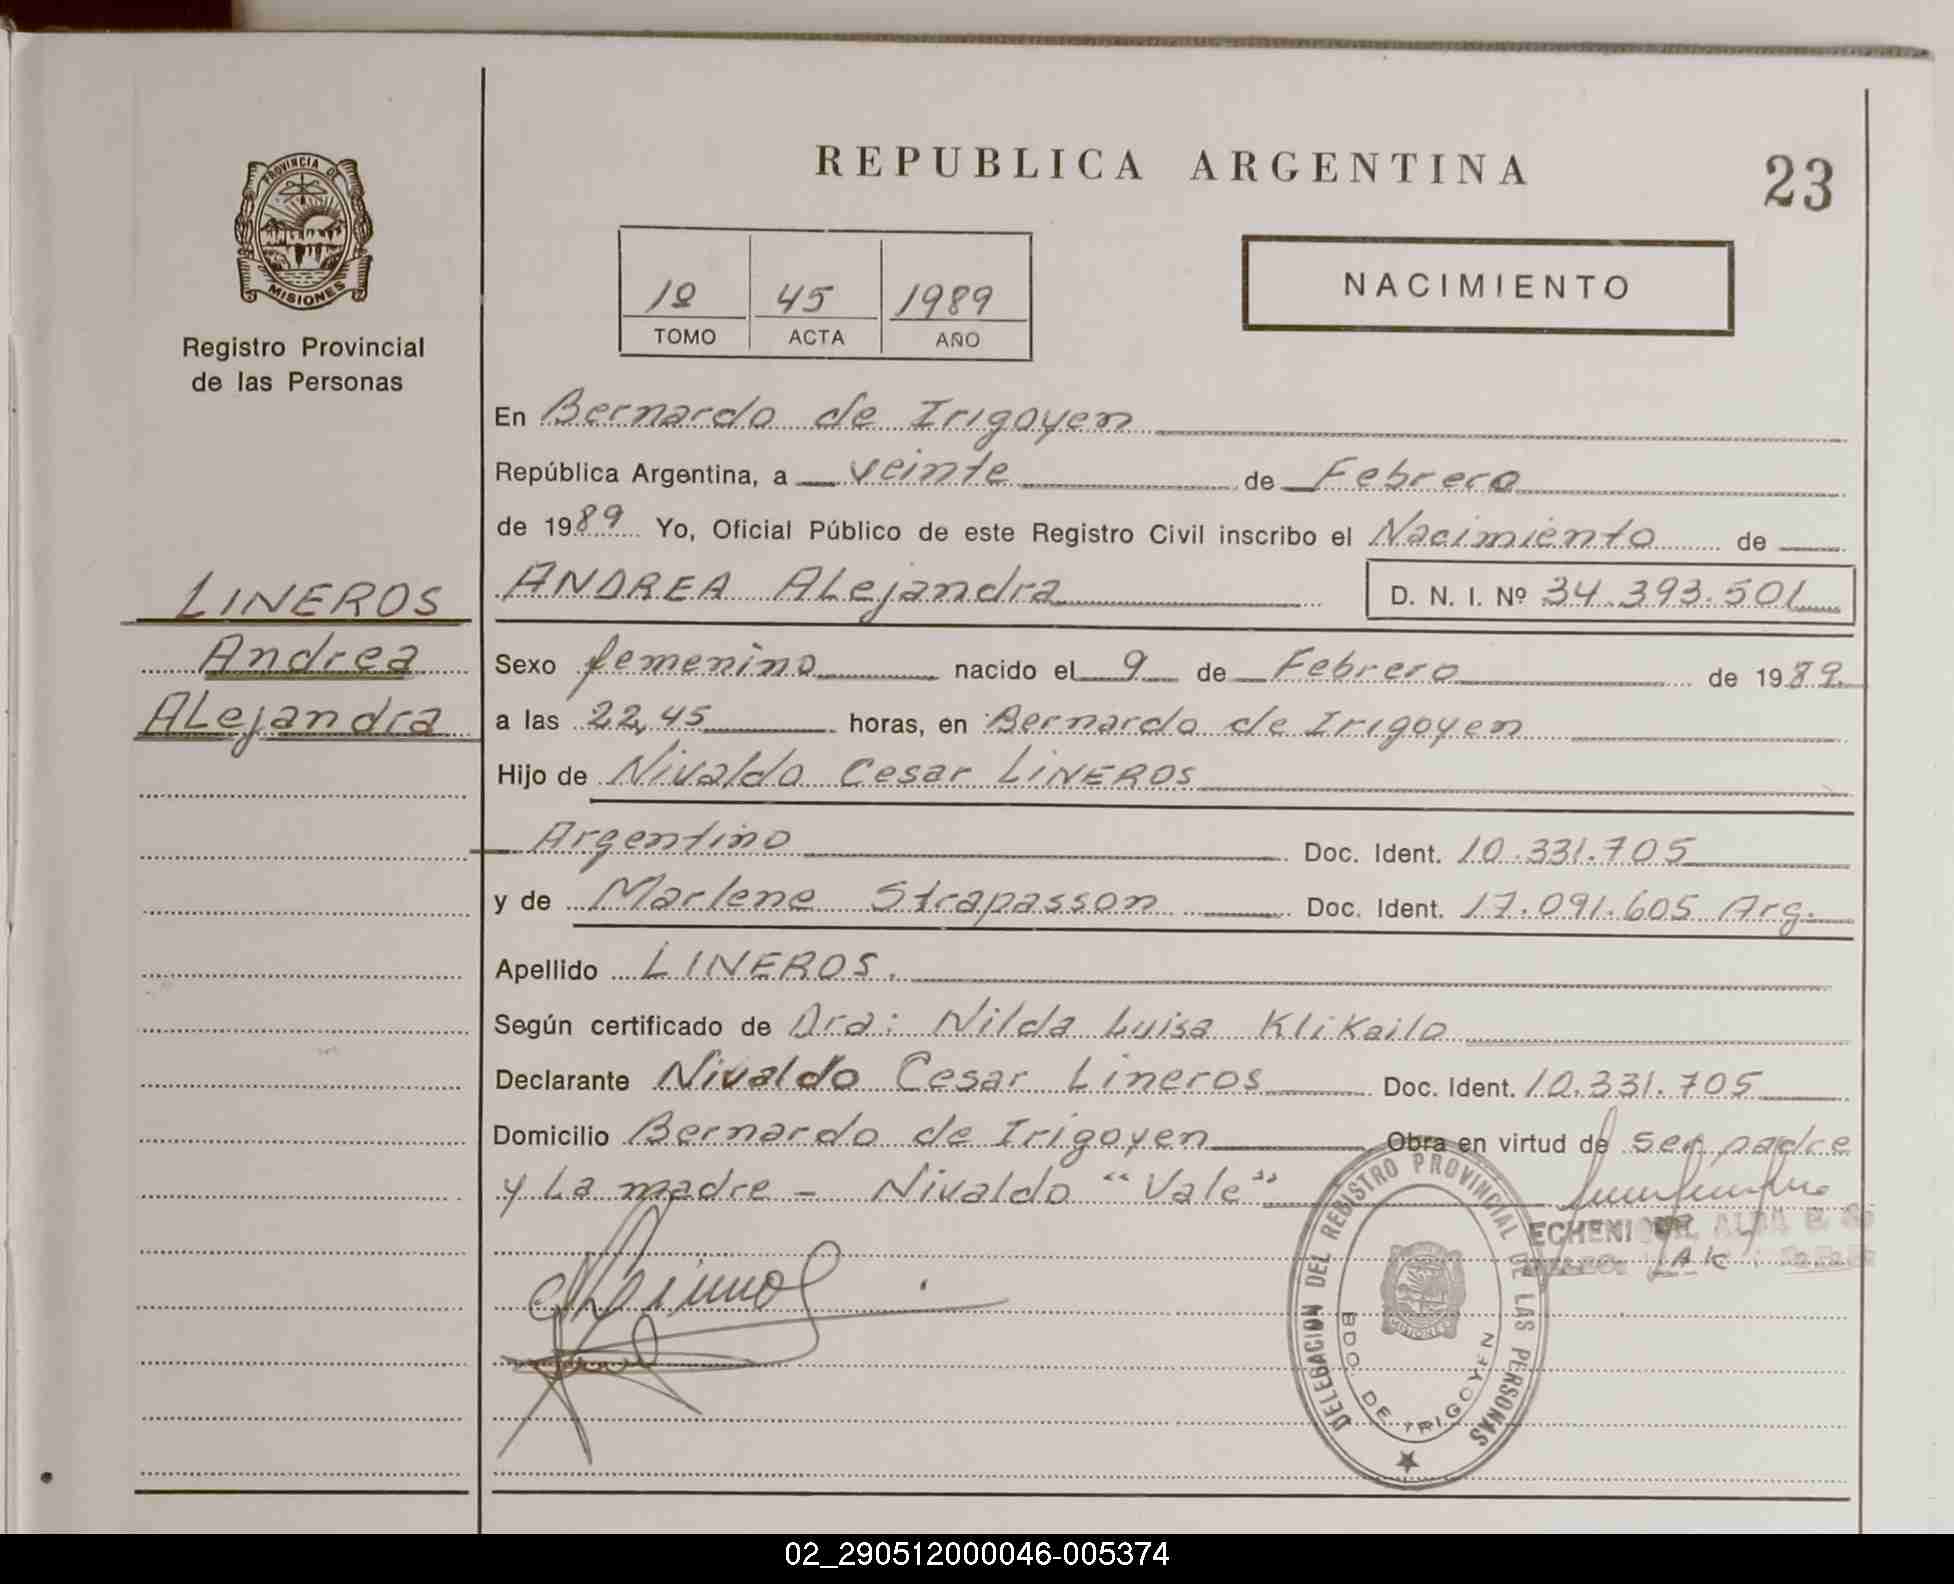 PROVINCIA DE
MISIONES
Registro Provincial
de las Personas
LINEROS
Andrea
ALejandra
REPUBLICA ARGENTINA
23
1º 45 1989
TOMO ACTA AÑO
NACIMIENTO
En Bernardo de Irigoyen
República Argentina, a veinte de Febrero
de 1989 Yo, Oficial Público de este Registro Civil inscribo el Nacimiento de
ANDREA ALejandra D. N. I. Nº 34.393.501
Sexo femenino nacido el 9 de Febrero de 1989
a las 22,45 horas, en Bernardo de Irigoyen
Hijo de Nivaldo Cesar LINEROS
Argentino Doc. Ident. 10.331.705
y de Marlene Strapasson Doc. Ident. 17.091.605 Arg.
Apellido LINEROS.
Según certificado de Dra: Nilda Luisa Klikailo
Declarante Nivaldo Cesar Lineros Doc. Ident. 10.331.705
Domicilio Bernardo de Irigoyen Obra en virtud de ser padre
y La madre - Nivaldo "Vale"
DELEGACION DEL REGISTRO PROVINCIAL DE LAS PERSONAS
BDO. DE IRIGOYEN
MISIONES
02_290512000046-005374